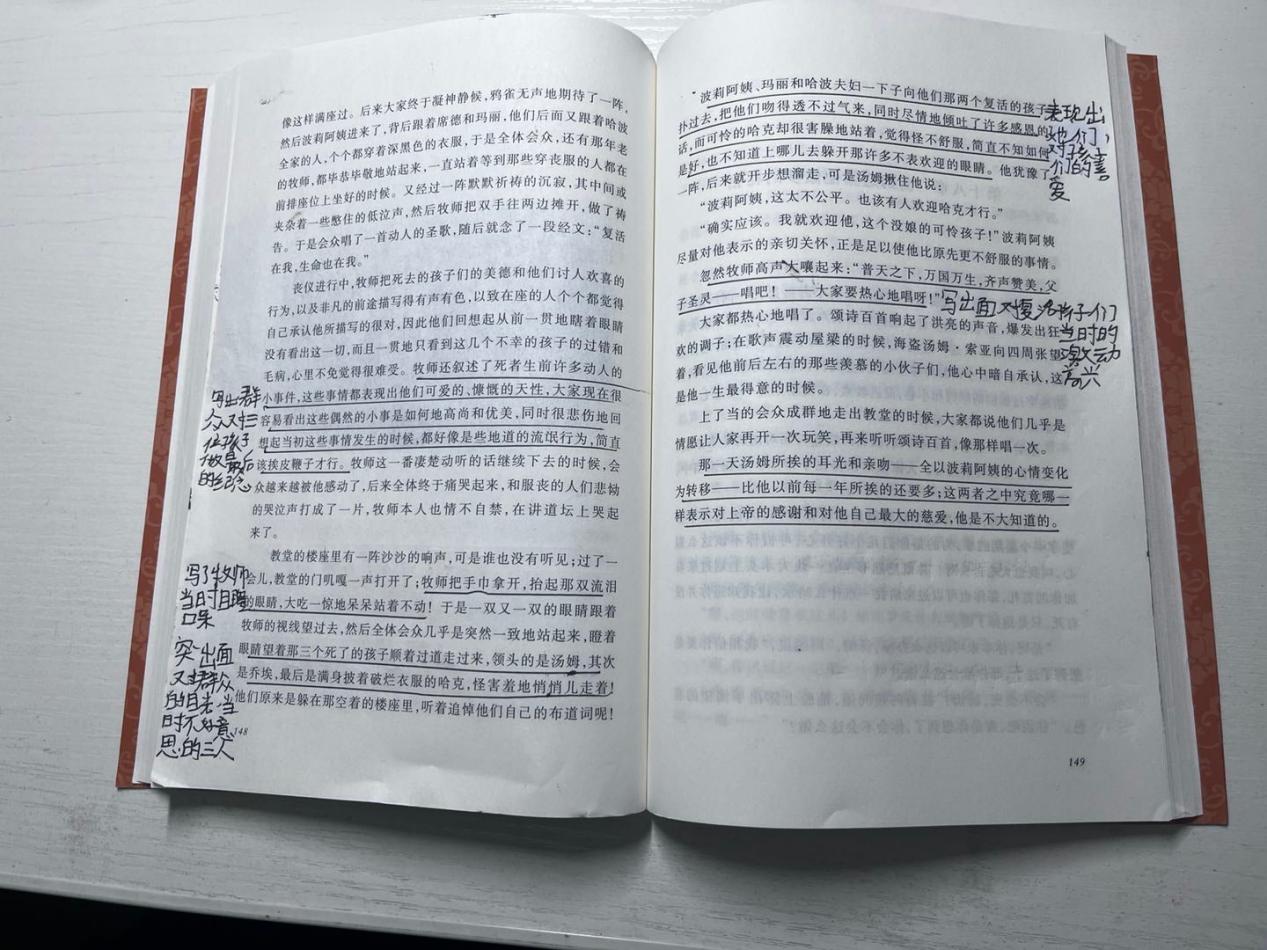 像这样满座过。后来大家终于凝神静候，鸦雀无声地期待了一阵，
然后波莉阿姨进来了，背后跟着席德和玛丽，他们后面又跟着哈波
全家的人，个个都穿着深黑色的衣服，于是全体会众，还有那年老
的牧师，都毕恭毕敬地站起来，一直站着等到那些穿丧服的人都在
前排座位上坐好的时候。又经过一阵默默祈祷的沉寂，其中间或
夹杂着一些憋住的低泣声，然后牧师把双手往两边摊开，做了祷
告。于是会众唱了一首动人的圣歌，随后就念了一段经文：“复活
在我，生命也在我。”
丧仪进行中，牧师把死去的孩子们的美德和他们讨人欢喜的
行为，以及非凡的前途描写得有声有色，以致在座的人个个都觉得
自己承认他所描写的很对，因此他们回想起从前一贯地瞎着眼睛
没有看出这一切，而且一贯地只看到这几个不幸的孩子的过错和
毛病，心里不免觉得很难受。牧师还叙述了死者生前许多动人的
小事件，这些事情都表现出他们可爱的、慷慨的天性，大家现在很
容易看出这些偶然的小事是如何地高尚和优美，同时很悲伤地回
想起当初这些事情发生的时候，都好像是些地道的流氓行为，简直
该挨皮鞭子才行。牧师这一番凄楚动听的话继续下去的时候，会
众越来越被他感动了，后来全体终于痛哭起来，和服丧的人们悲恸
的哭泣声打成了一片，牧师本人也情不自禁，在讲道坛上哭起
来了。
教堂的楼座里有一阵沙沙的响声，可是谁也没有听见；过了一
会儿，教堂的门叽嘎一声打开了；牧师把手巾拿开，抬起那双流泪
的眼睛，大吃一惊地呆呆站着不动！于是一双又一双的眼睛跟着
牧师的视线望过去，然后全体会众几乎是突然一致地站起来，瞪着
眼睛望着那三个死了的孩子顺着过道走过来，领头的是汤姆，其次
是乔埃，最后是满身披着破烂衣服的哈克，怪害羞地悄悄儿走着！
他们原来是躲在那空着的楼座里，听着追悼他们自己的布道词呢！
148
写出群
众又对三
位孩子
做最后
的
写了牧师
当时目瞪
口呆
突出面
对群众
的目光，当
时不好意
思的三人
波莉阿姨、玛丽和哈波夫妇一下子向他们那两个复活的孩子
扑过去，把他们吻得透不过气来，同时尽情地倾吐了许多感恩的
话，而可怜的哈克却很害臊地站着，觉得怪不舒服，简直不知如何
是好，也不知道上哪儿去躲开那许多不表欢迎的眼睛。他犹豫了
一阵，后来就开步想溜走，可是汤姆揪住他说：
“波莉阿姨，这太不公平。也该有人欢迎哈克才行。”
“确实应该。我就欢迎他，这个没娘的可怜孩子！”波莉阿姨
尽量对他表示的亲切关怀，正是足以使他比原先更不舒服的事情。
忽然牧师高声大嚷起来：“普天之下，万国万生，齐声赞美，父
子圣灵——唱吧！——大家要热心地唱呀！”
大家都热心地唱了。颂诗百首响起了洪亮的声音，爆发出狂
欢的调子；在歌声震动屋梁的时候，海盗汤姆·索亚向四周张望
着，看见他前后左右的那些羡慕的小伙子们，他心中暗自承认，这
是他一生最得意的时候。
上了当的会众成群地走出教堂的时候，大家都说他们几乎是
情愿让人家再开一次玩笑，再来听听颂诗百首，像那样唱一次。
那一天汤姆所挨的耳光和亲吻——全以波莉阿姨的心情变化
为转移——比他以前每一年所挨的还要多；这两者之中究竟哪一
样表示对上帝的感谢和对他自己最大的慈爱，他是不大知道的。
149
表现出
她们
对孩子
们的喜
爱
写出面对复活孩子们
当时的
激动
高兴